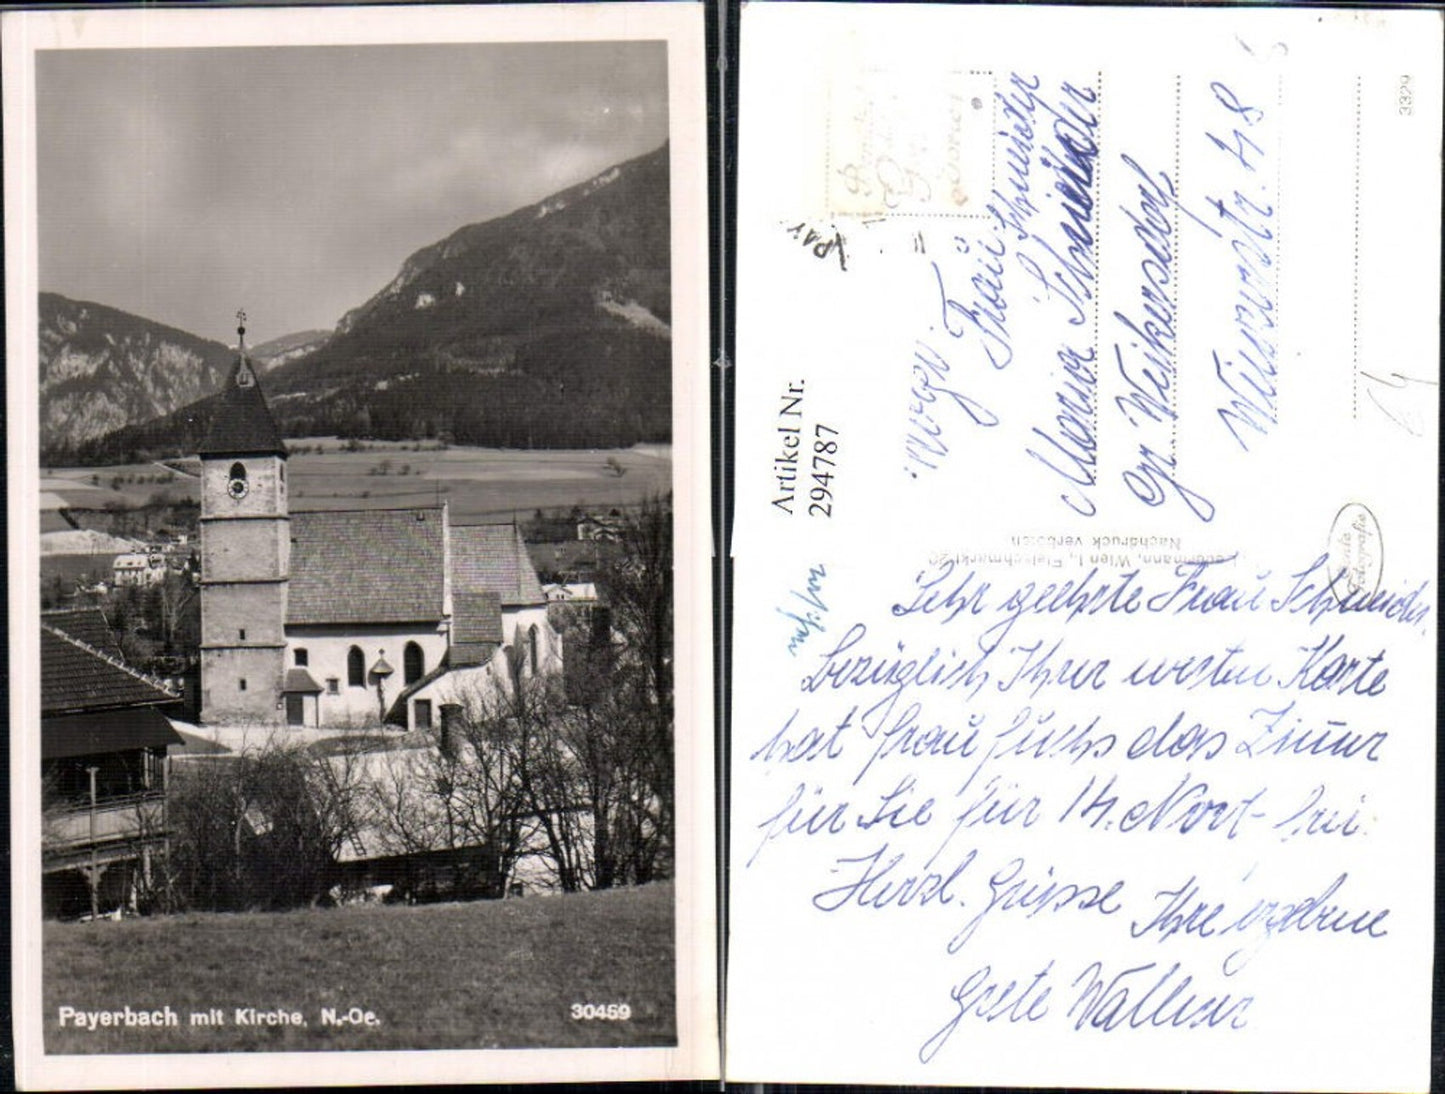 Payerbach mit Kirche, N.-Oe.
30469
PAY
Frau
Schneider
Maria Schneider
Gr Weikersdorf
Wienerstr. 48
3329
Artikel Nr.
294787
Wien I., Fleischmarkt 20
Nachdruck verboten
Echte
Fotografie
Sehr geehrte Frau Schneider,
Bezüglich Ihrer werten Karte
hat Frau Fuchs das Zimmer
für Sie für 14. Novb- frei.
Herzl. Grüsse Ihre ergebene
Grete Wallner